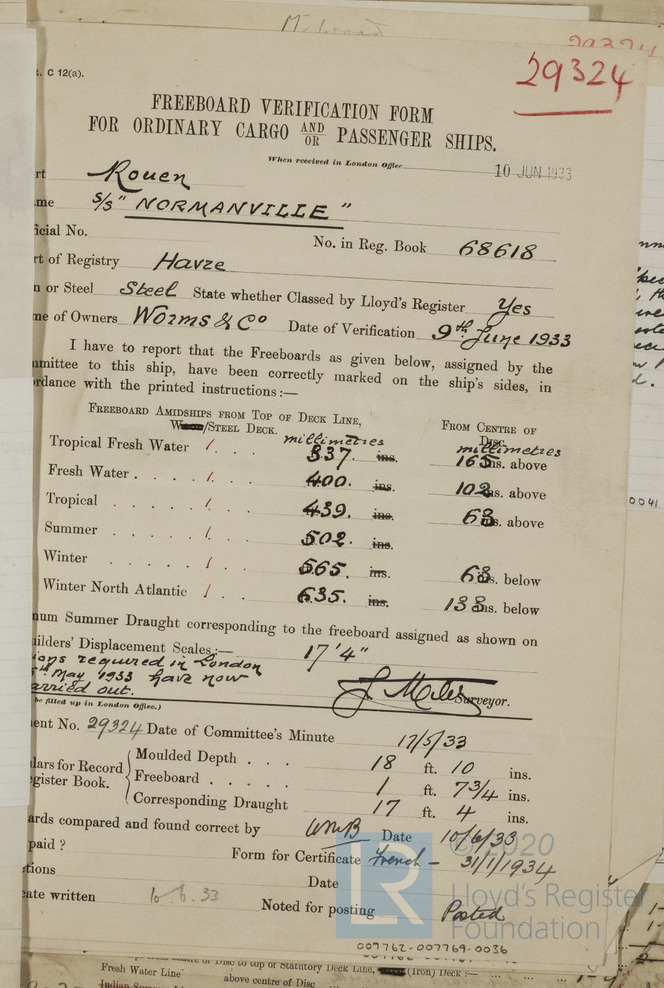 29324
C 12(a).
29324
FREEBOARD VERIFICATION FORM
FOR ORDINARY CARGO AND/OR PASSENGER SHIPS.
When received in London Office 10 JUN 1933
rt Rouen
me S/S "NORMANVILLE"
icial No.
No. in Reg. Book 68618
rt of Registry Havre
n or Steel Steel State whether Classed by Lloyd's Register Yes
me of Owners Worms & Co Date of Verification 9th June 1933
I have to report that the Freeboards as given below, assigned by the
mmittee to this ship, have been correctly marked on the ship's sides, in
rdance with the printed instructions:—
FREEBOARD AMIDSHIPS FROM TOP OF DECK LINE, FROM CENTRE OF
/STEEL DECK. millimetres DISC. millimetres
Tropical Fresh Water 337. ins. 165 ins. above
Fresh Water 400. ins. 102 ins. above
Tropical 439. ins. 63 ins. above
Summer 502. ins.
Winter 565. ins. 63 ins. below
Winter North Atlantic 635. ins. 133 ins. below
num Summer Draught corresponding to the freeboard assigned as shown on
uilders' Displacement Scales:— 17'4"
ions required in London
May 1933 have now
arried out.
Surveyor.
be filled up in London Office.)
ent No. 29324 Date of Committee's Minute 17/5/33
lars for Record Moulded Depth 18 ft. 10 ins.
egister Book. Freeboard 1 ft. 7 3/4 ins.
Corresponding Draught 17 ft. 4 ins.
ards compared and found correct by WMB Date 10/6/33
paid ? Form for Certificate French - 31/1/1934
tions Date
ate written 10.6.33 Noted for posting Posted
© 2020
LR Lloyd's Register
Foundation
007762-007769-0036
0041
Disc to top of Statutory Deck Line, (Iron) Deck :—
Fresh Water Line above centre of Disc